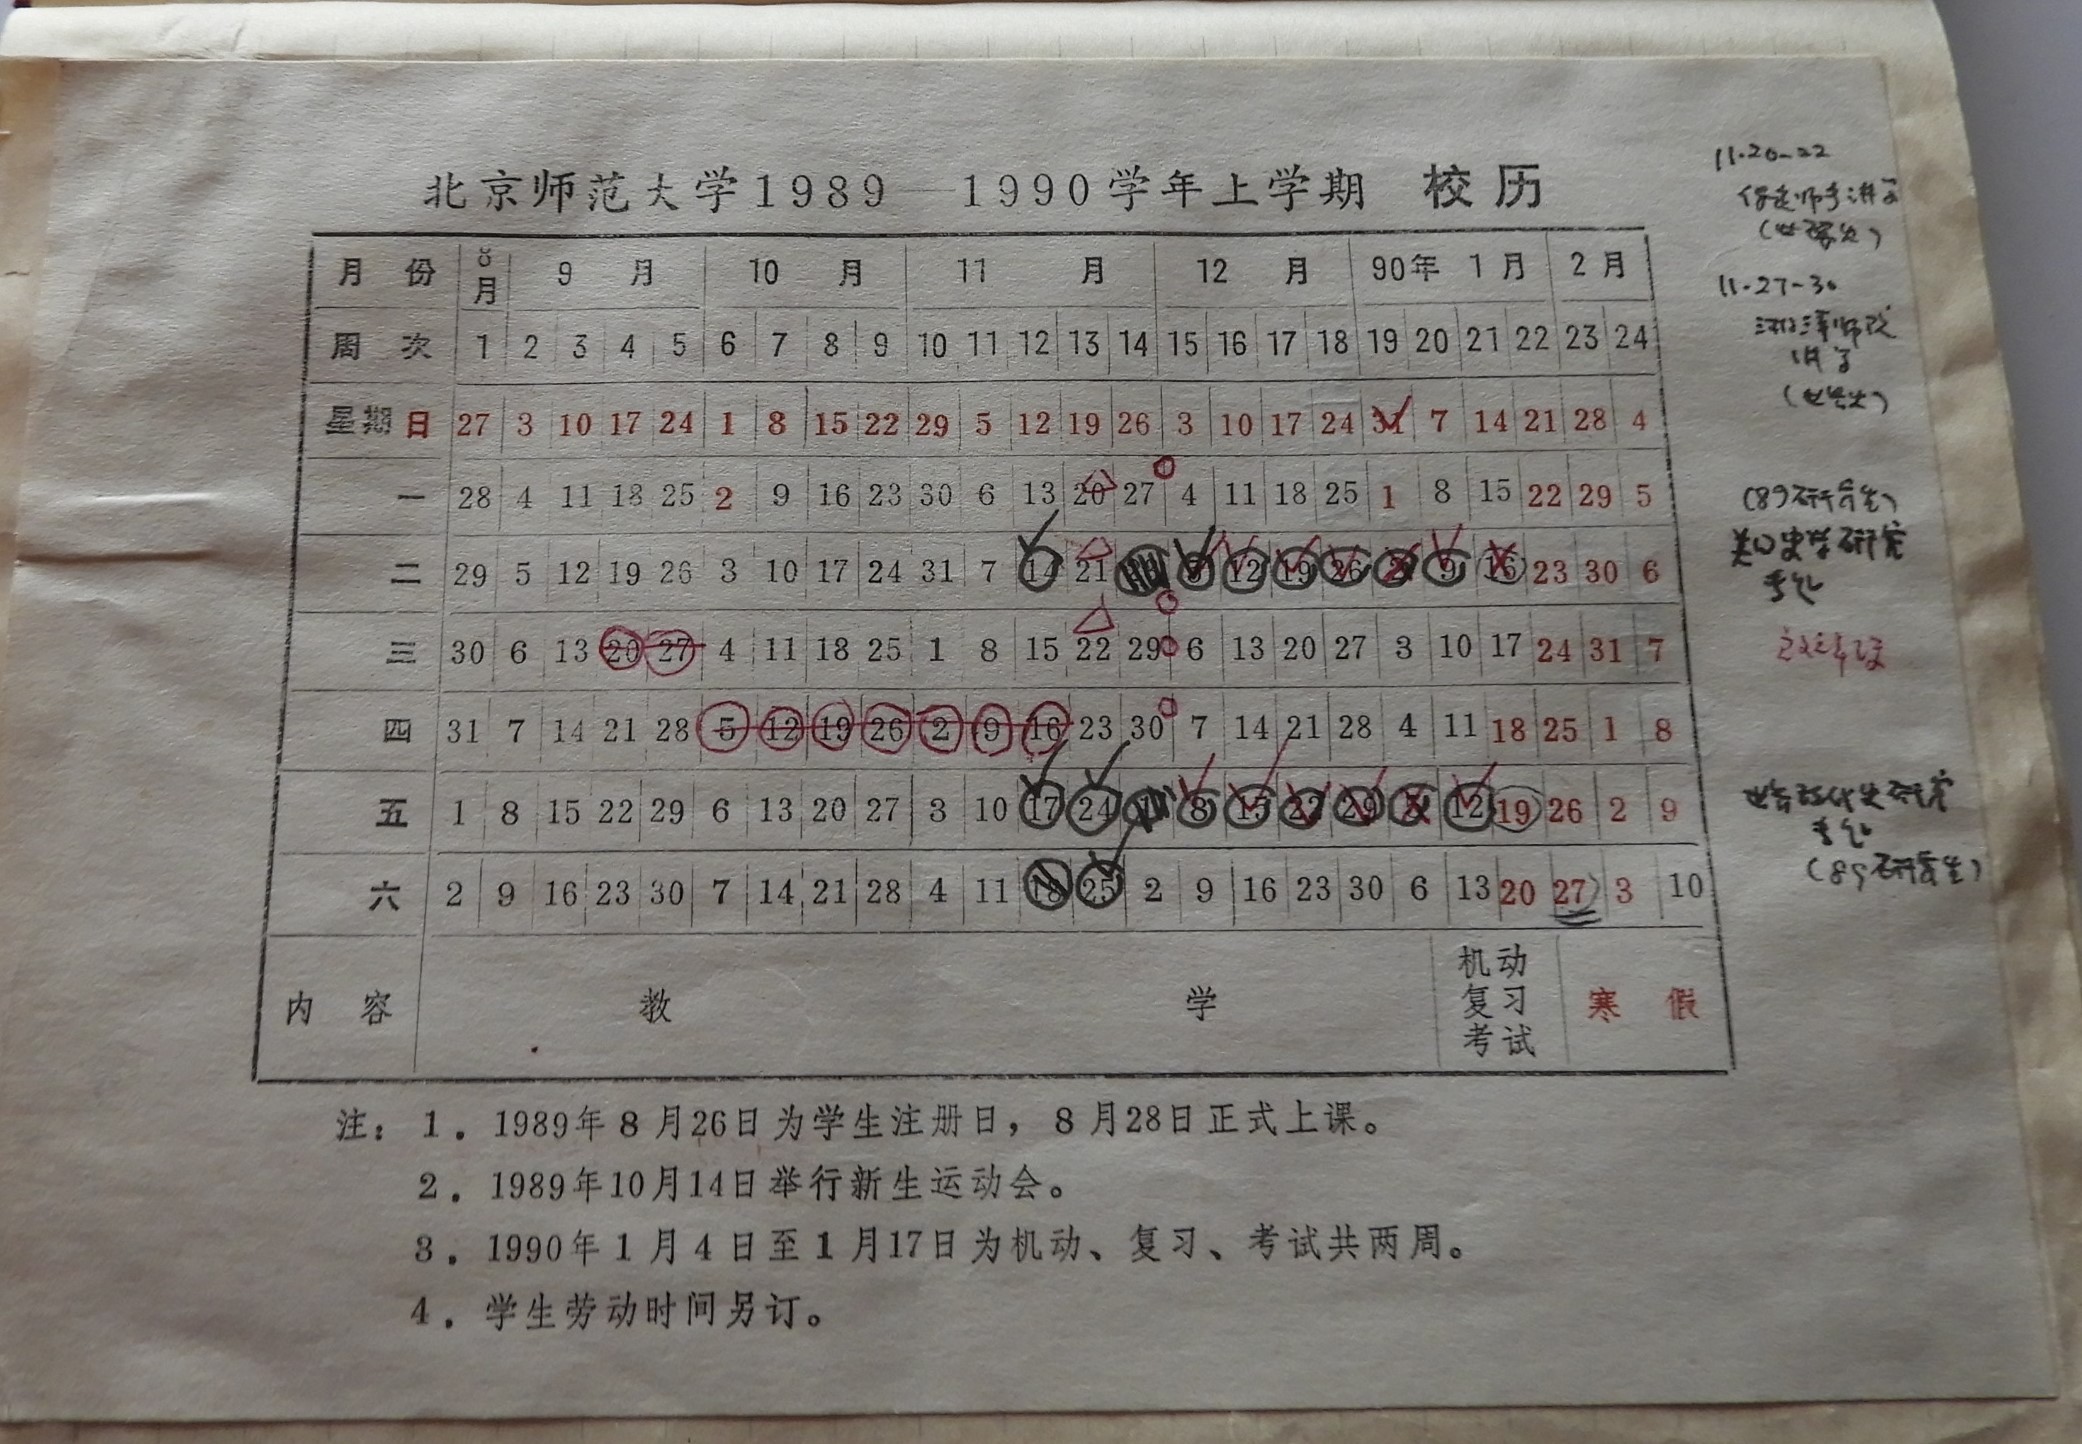 北京师范大学1989—1990学年上学期 校历
月 份 8月 9 月 10 月 11 月 12 月 90年 1 月 2 月
周 次 1 2 3 4 5 6 7 8 9 10 11 12 13 14 15 16 17 18 19 20 21 22 23 24
星期日 27 3 10 17 24 1 8 15 22 29 5 12 19 26 3 10 17 24 31 7 14 21 28 4
一 28 4 11 18 25 2 9 16 23 30 6 13 20 27 4 11 18 25 1 8 15 22 29 5
二 29 5 12 19 26 3 10 17 24 31 7 14 21 12 19 26 2 9 16 23 30 6
三 30 6 13 20 27 4 11 18 25 1 8 15 22 29 6 13 20 27 3 10 17 24 31 7
四 31 7 14 21 28 5 12 19 26 2 9 16 23 30 7 14 21 28 4 11 18 25 1 8
五 1 8 15 22 29 6 13 20 27 3 10 17 24 1 8 15 22 29 12 19 26 2 9
六 2 9 16 23 30 7 14 21 28 4 11 18 25 2 9 16 23 30 6 13 20 27 3 10
内 容 教 学 机动 复习 考试 寒 假
注：1．1989年8月26日为学生注册日，8月28日正式上课。
2．1989年10月14日举行新生运动会。
3．1990年1月4日至1月17日为机动、复习、考试共两周。
4．学生劳动时间另订。
11·20-22
11·27-30
讲学
(89研究生)
美国史学研究
(89研究生)